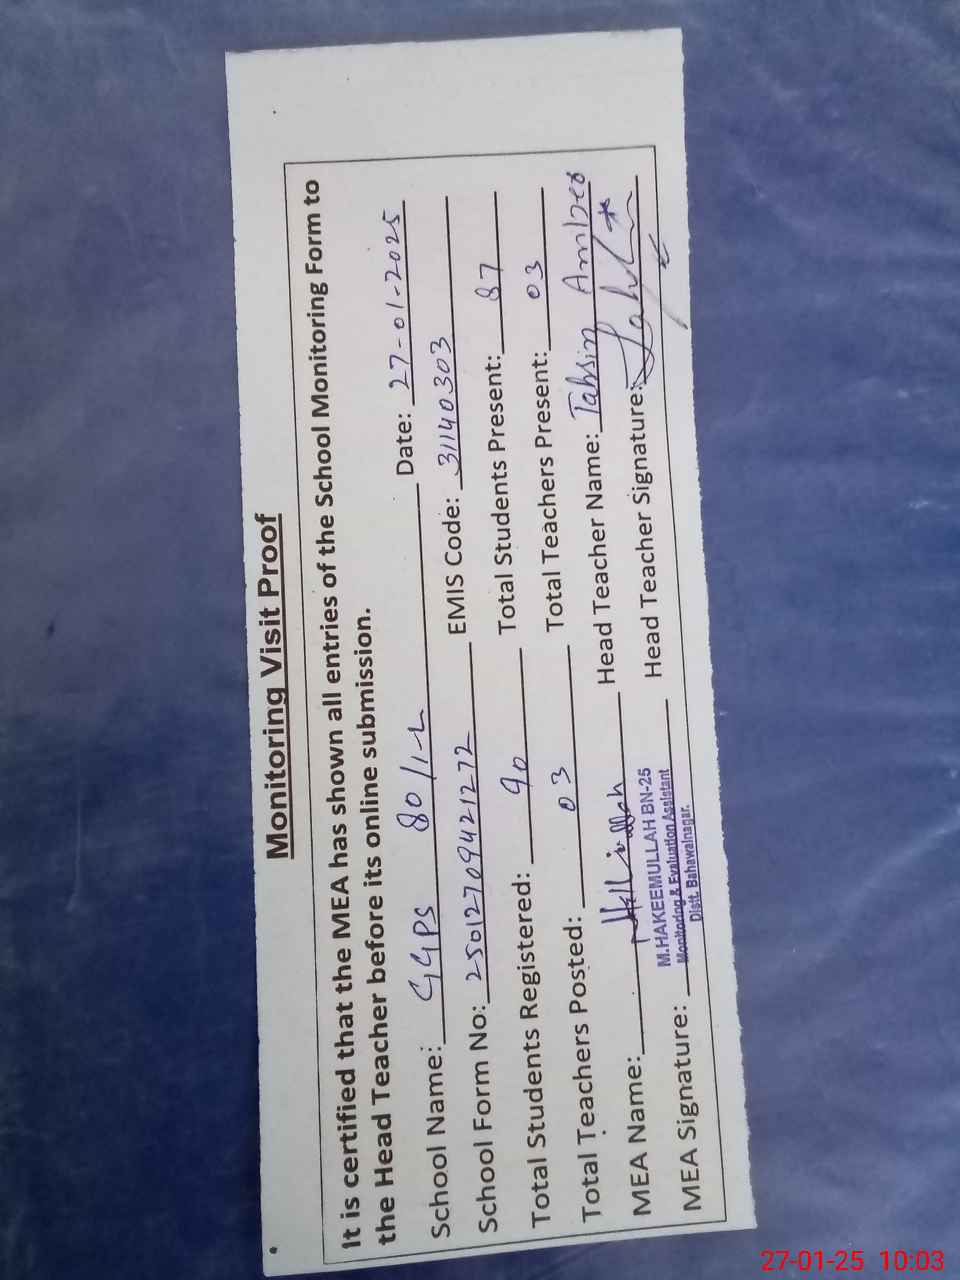 Monitoring Visit Proof
It is certified that the MEA has shown all entries of the School Monitoring Form to
the Head Teacher before its online submission.
School Name: GGPS 80/1-L Date: 27-01-2025
School Form No: 25012709421272 EMIS Code: 31140303
Total Students Registered: 90 Total Students Present: 87
Total Teachers Posted: 03 Total Teachers Present: 03
MEA Name: Head Teacher Name: Tahsin Amber
M.HAKEEMULLAH BN-25
Monitoring & Evaluation Assistant
Distt. Bahawalnagar.
MEA Signature: Head Teacher Signature:
27-01-25 10:03